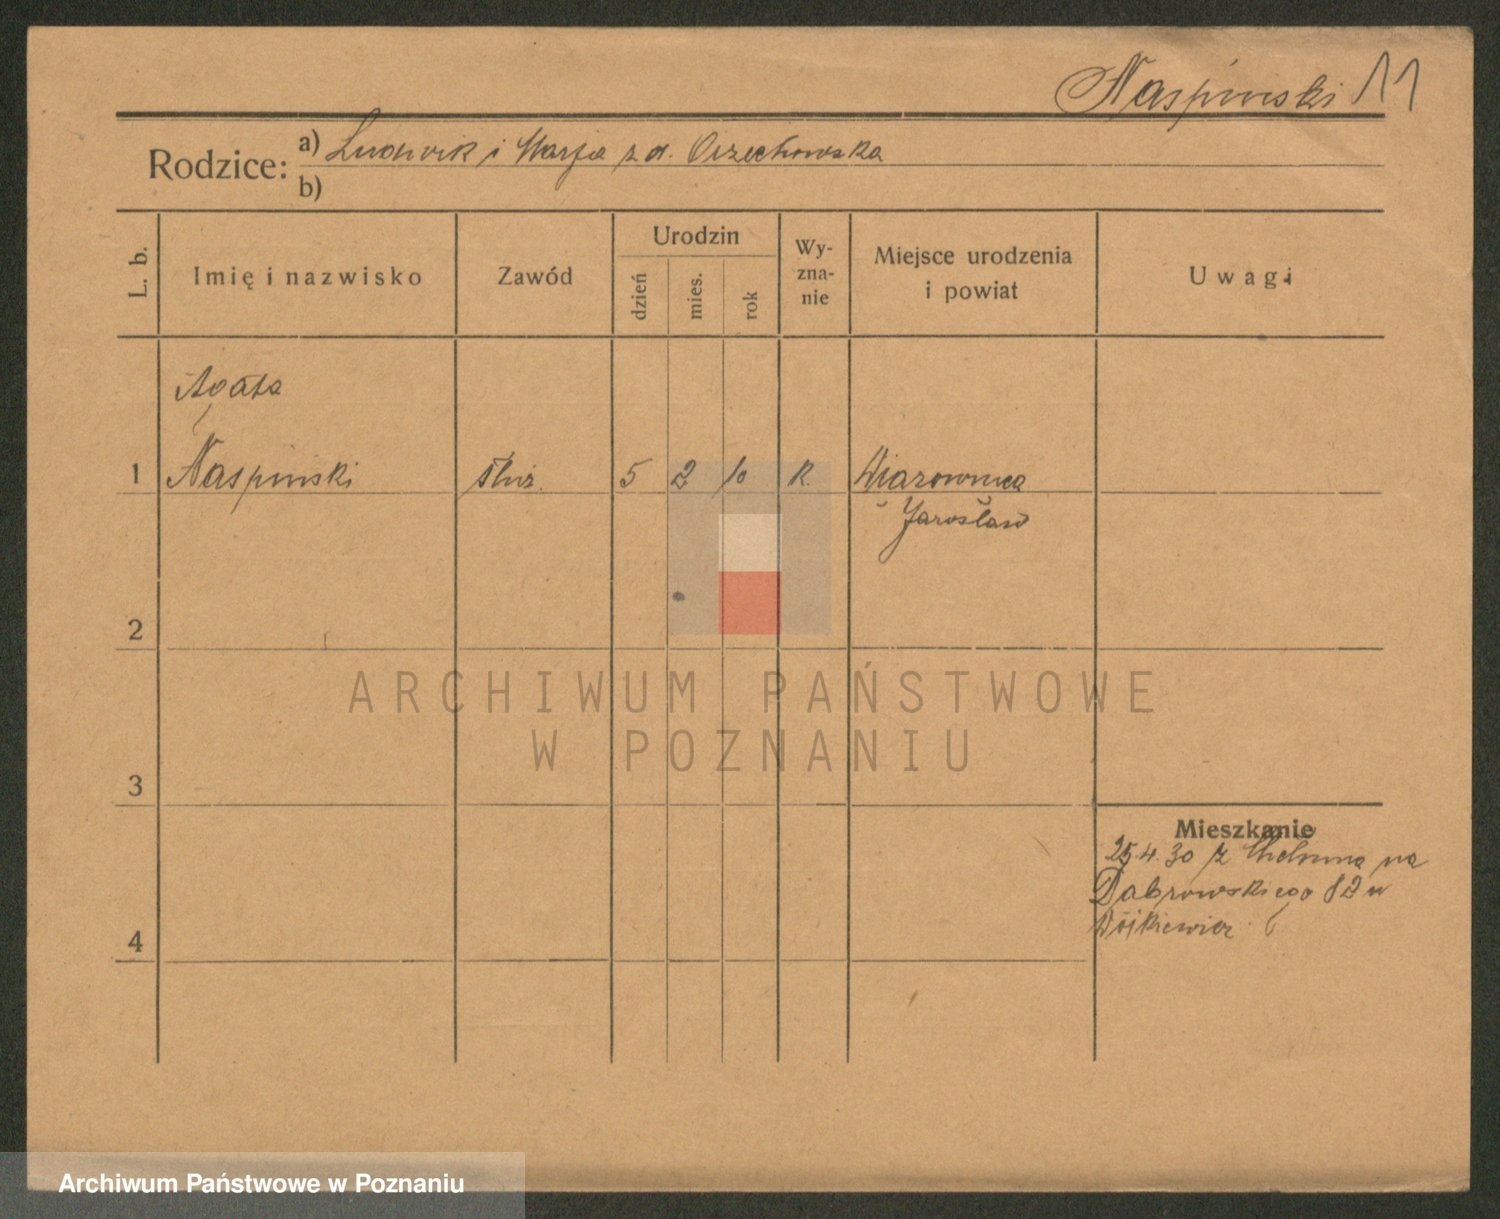 Naspiński 11
Rodzice: a) Ludwik i Marja z d. Orzechowska
b)
L. b.
Imię i nazwisko
Zawód
Urodzin
dzień
mies.
rok
Wy-
zna-
nie
Miejsce urodzenia
i powiat
Uwagi
Agata
1 Naspiński służ. 5 2 10 R. Wiazownica
Jarosław
2
3
4
Mieszkanie
25.4.30 z Chełmna na
Dąbrowskiego 82 u
Wójkiewicz
ARCHIWUM PAŃSTWOWE
W POZNANIU
Archiwum Państwowe w Poznaniu